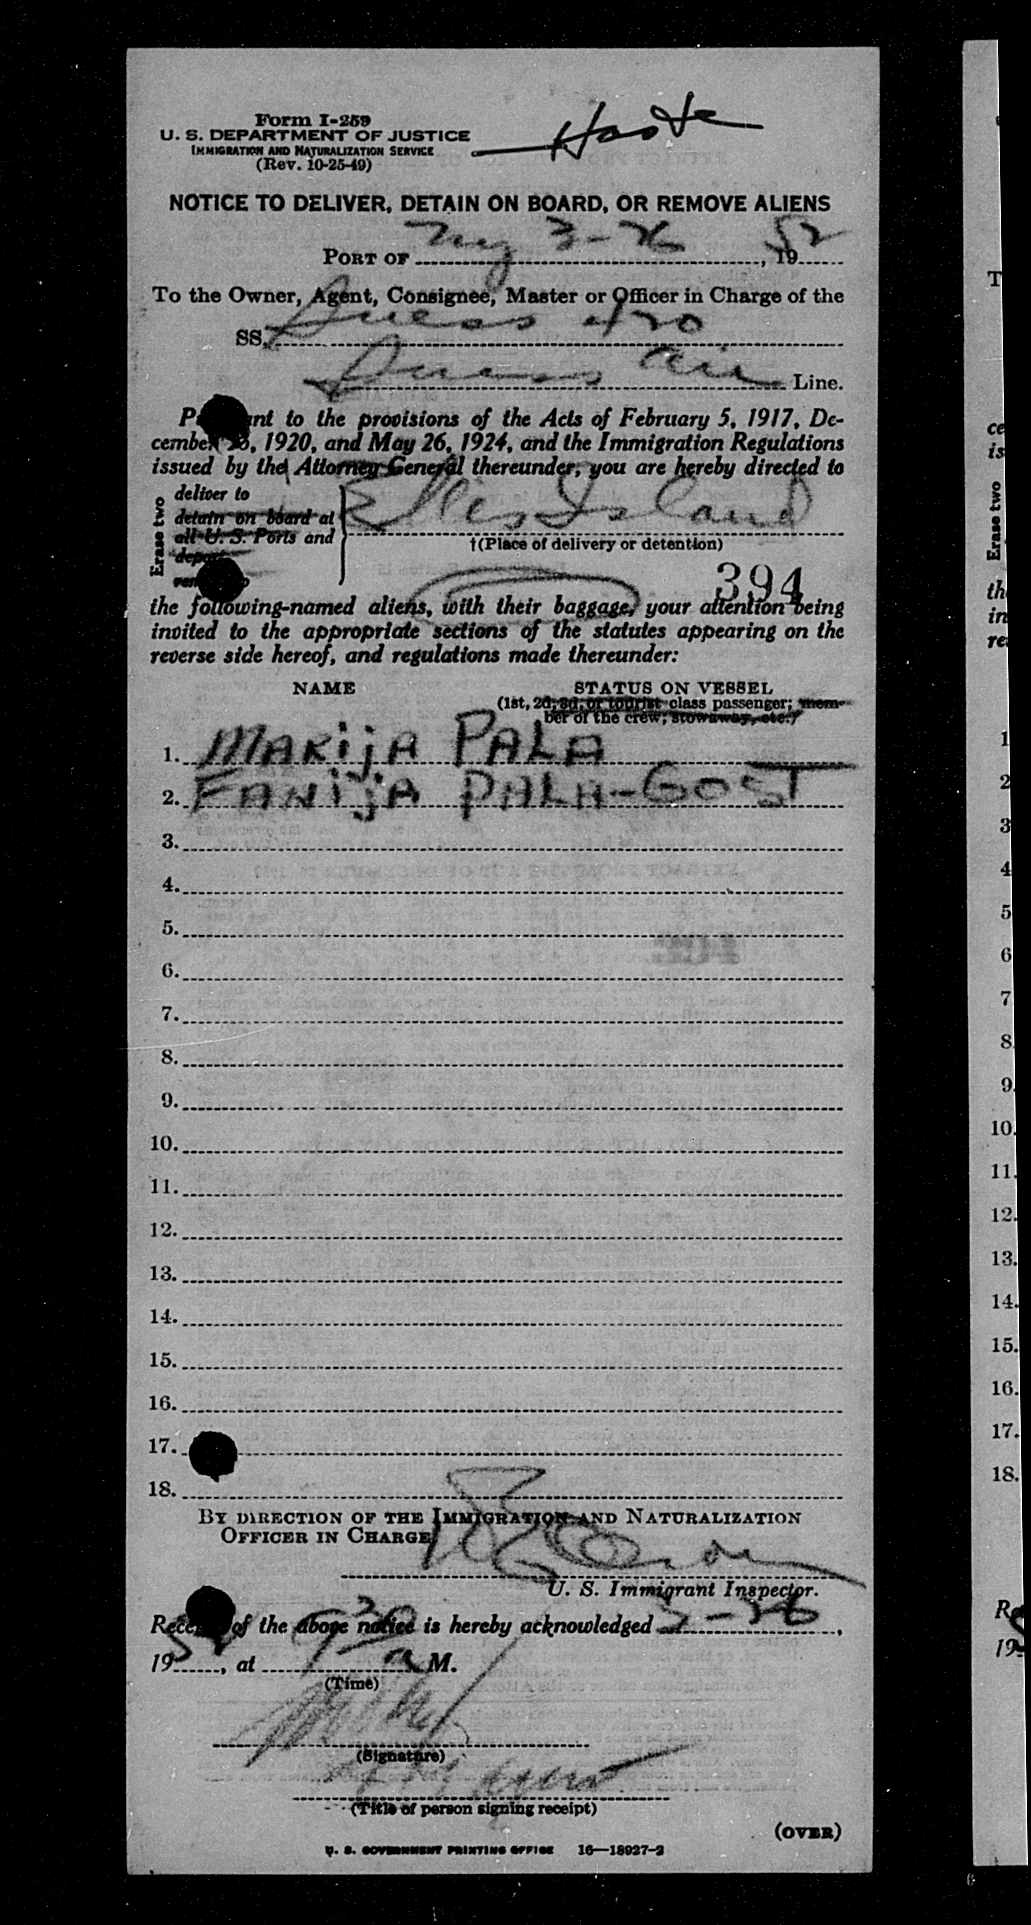 Form I-259
U. S. DEPARTMENT OF JUSTICE
IMMIGRATION AND NATURALIZATION SERVICE
(Rev. 10-25-49)
NOTICE TO DELIVER, DETAIN ON BOARD, OR REMOVE ALIENS
PORT OF NY 3-26, 1952
To the Owner, Agent, Consignee, Master or Officer in Charge of the
SS.
Air Line.
Pursuant to the provisions of the Acts of February 5, 1917, De-
cember 1920, and May 26, 1924, and the Immigration Regulations
issued by the Attorney General thereunder, you are hereby directed to
Erase two
deliver to
detain on board at
all U. S. Ports and
Ellis Island
†(Place of delivery or detention)
394
the following-named aliens, with their baggage, your attention being
invited to the appropriate sections of the statutes appearing on the
reverse side hereof, and regulations made thereunder:
NAME STATUS ON VESSEL
(1st, 2d, 3d, or tourist class passenger; mem-
ber of the crew; stowaway, etc.)
1. MARIJA PALA
2. FANIJA PALA-GOST
3.
4.
5.
6.
7.
8.
9.
10.
11.
12.
13.
14.
15.
16.
17.
18.
BY DIRECTION OF THE IMMIGRATION AND NATURALIZATION
OFFICER IN CHARGE
U. S. Immigrant Inspector.
Receipt of the above notice is hereby acknowledged 3-26,
1952, at 9 30 a M.
(Time)
(Signature)
(Title of person signing receipt)
(OVER)
U. S. GOVERNMENT PRINTING OFFICE 16—18927-2
T
ce
is
Erase two
th
in
re
1
2
3
4
5
6
7
8.
9.
10.
11.
12.
13.
14.
15.
16.
17.
18.
19